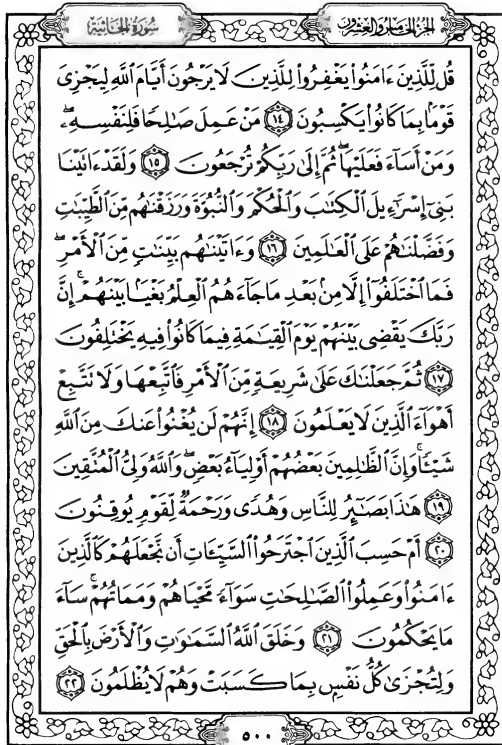 الجزء الخامس والعشرون
سورة الجاثية
قُل لِّلَّذِينَ ءَامَنُوا۟ يَغْفِرُوا۟ لِلَّذِينَ لَا يَرْجُونَ أَيَّامَ ٱللَّهِ لِيَجْزِىَ
قَوْمًۢا بِمَا كَانُوا۟ يَكْسِبُونَ ١٤ مَنْ عَمِلَ صَٰلِحًا فَلِنَفْسِهِۦۖ
وَمَنْ أَسَآءَ فَعَلَيْهَاۖ ثُمَّ إِلَىٰ رَبِّكُمْ تُرْجَعُونَ ١٥ وَلَقَدْ ءَاتَيْنَا
بَنِىٓ إِسْرَٰٓءِيلَ ٱلْكِتَٰبَ وَٱلْحُكْمَ وَٱلنُّبُوَّةَ وَرَزَقْنَٰهُم مِّنَ ٱلطَّيِّبَٰتِ
وَفَضَّلْنَٰهُمْ عَلَى ٱلْعَٰلَمِينَ ١٦ وَءَاتَيْنَٰهُم بَيِّنَٰتٍ مِّنَ ٱلْأَمْرِۖ
فَمَا ٱخْتَلَفُوٓا۟ إِلَّا مِنۢ بَعْدِ مَا جَآءَهُمُ ٱلْعِلْمُ بَغْيًۢا بَيْنَهُمْۚ إِنَّ
رَبَّكَ يَقْضِى بَيْنَهُمْ يَوْمَ ٱلْقِيَٰمَةِ فِيمَا كَانُوا۟ فِيهِ يَخْتَلِفُونَ
١٧ ثُمَّ جَعَلْنَٰكَ عَلَىٰ شَرِيعَةٍ مِّنَ ٱلْأَمْرِ فَٱتَّبِعْهَا وَلَا تَتَّبِعْ
أَهْوَآءَ ٱلَّذِينَ لَا يَعْلَمُونَ ١٨ إِنَّهُمْ لَن يُغْنُوا۟ عَنكَ مِنَ ٱللَّهِ
شَيْـًٔاۚ وَإِنَّ ٱلظَّٰلِمِينَ بَعْضُهُمْ أَوْلِيَآءُ بَعْضٍۖ وَٱللَّهُ وَلِىُّ ٱلْمُتَّقِينَ
١٩ هَٰذَا بَصَٰٓئِرُ لِلنَّاسِ وَهُدًى وَرَحْمَةٌ لِّقَوْمٍ يُوقِنُونَ
٢٠ أَمْ حَسِبَ ٱلَّذِينَ ٱجْتَرَحُوا۟ ٱلسَّيِّـَٔاتِ أَن نَّجْعَلَهُمْ كَٱلَّذِينَ
ءَامَنُوا۟ وَعَمِلُوا۟ ٱلصَّٰلِحَٰتِ سَوَآءً مَّحْيَاهُمْ وَمَمَاتُهُمْۚ سَآءَ
مَا يَحْكُمُونَ ٢١ وَخَلَقَ ٱللَّهُ ٱلسَّمَٰوَٰتِ وَٱلْأَرْضَ بِٱلْحَقِّ
وَلِتُجْزَىٰ كُلُّ نَفْسٍۭ بِمَا كَسَبَتْ وَهُمْ لَا يُظْلَمُونَ ٢٢
٥٠٠